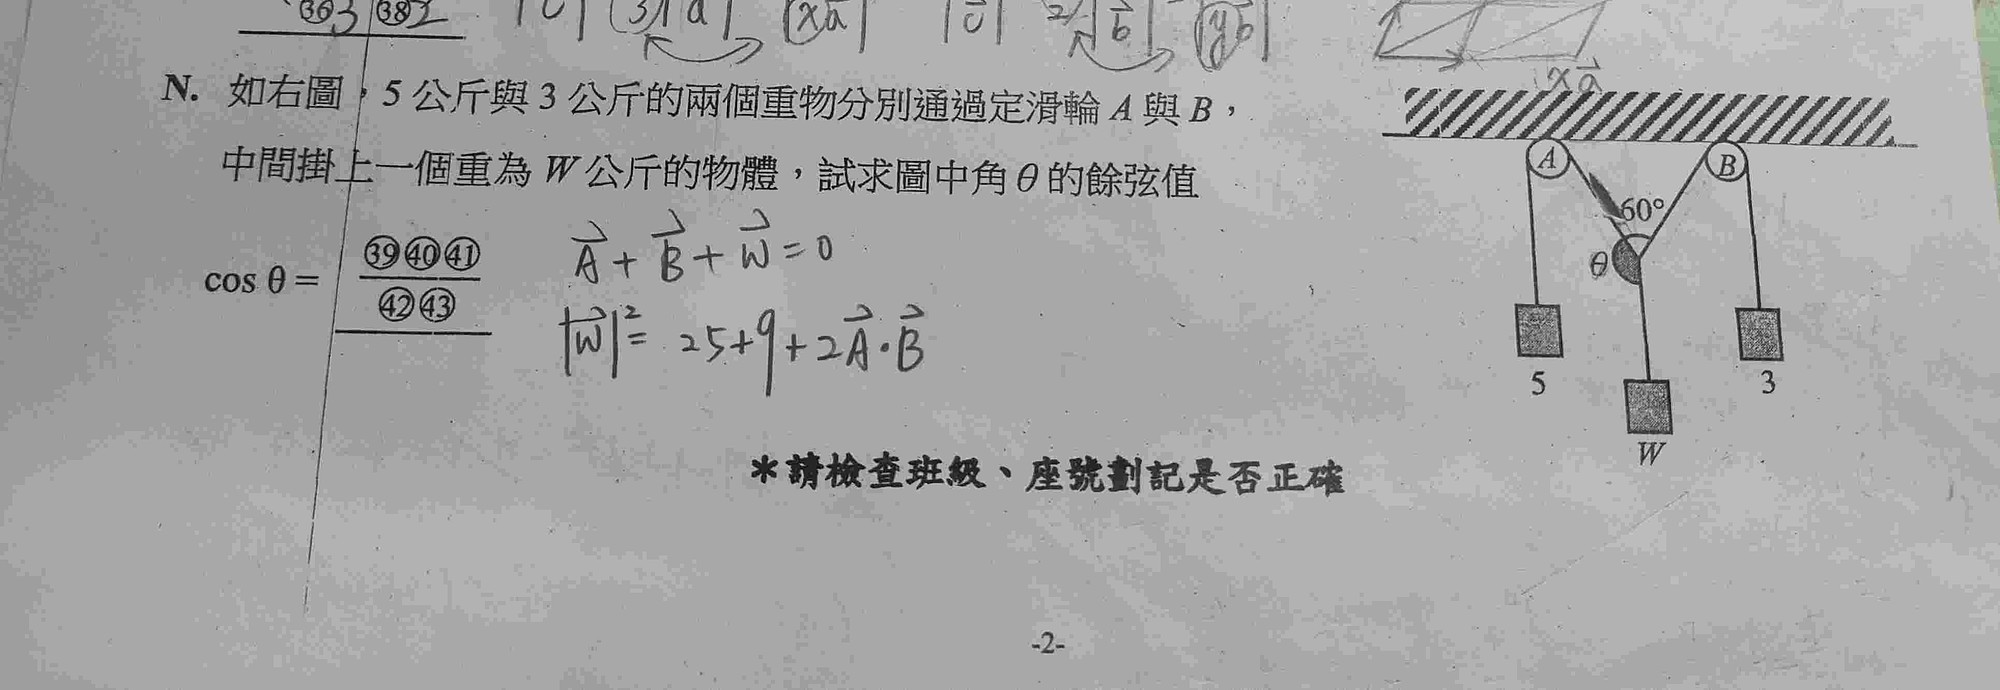 ㊱3 ㊳2 |c| (3)|a| (xa)| |c| 2|b| (yb)|
xa
N. 如右圖，5 公斤與 3 公斤的兩個重物分別通過定滑輪 A 與 B，
中間掛上一個重為 W 公斤的物體，試求圖中角 θ 的餘弦值
cos θ = ㊴㊵㊶
㊷㊸
A + B + W = 0
|W|² = 25+9+2A·B
A B
60°
θ
5 3
W
＊請檢查班級、座號劃記是否正確
-2-